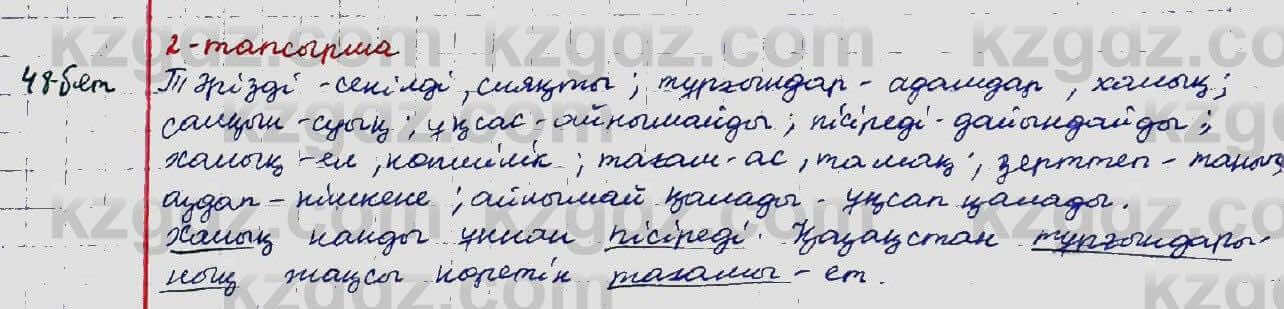 2-тапсырма
48-бет Тәрізді - секілді, сияқты; тұрғындар - адамдар, халық;
салқын - суық; ұқсас - айнымайды; пісіреді - дайындайды;
халық - ел, көпшілік; тағам - ас, тамақ; зерттеп - танып,
аудап - кішкене; айнымай қалады - ұқсап қалады.
Халық нанды ұннан пісіреді. Қазақстан тұрғындары-
ның жақсы көретін тағамы - ет.